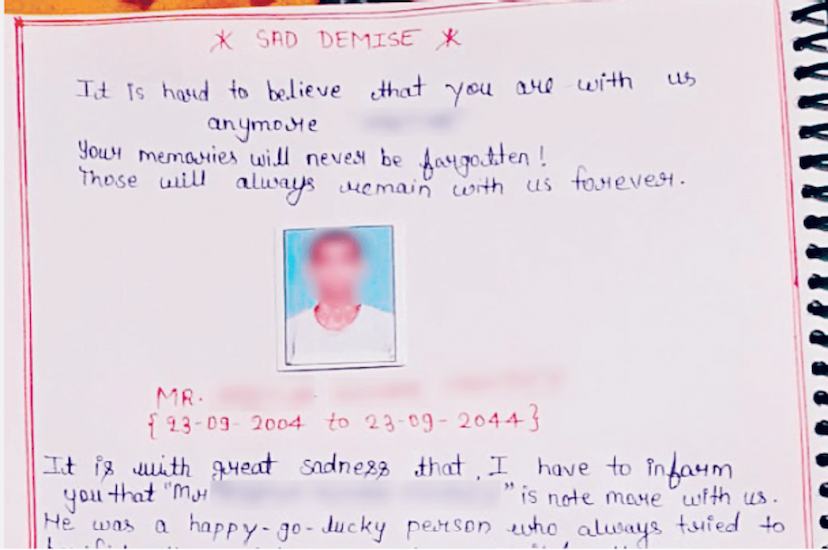 * SAD DEMISE *
It is hard to believe that you are with us
anymore
Your memories will never be fargotten!
Those will always remain with us forever.
MR.
{23-09-2004 to 23-09-2044}
It is with great sadness that, I have to infarm
you that "Mr " is note more with us.
He was a happy-go-lucky person who always tried to